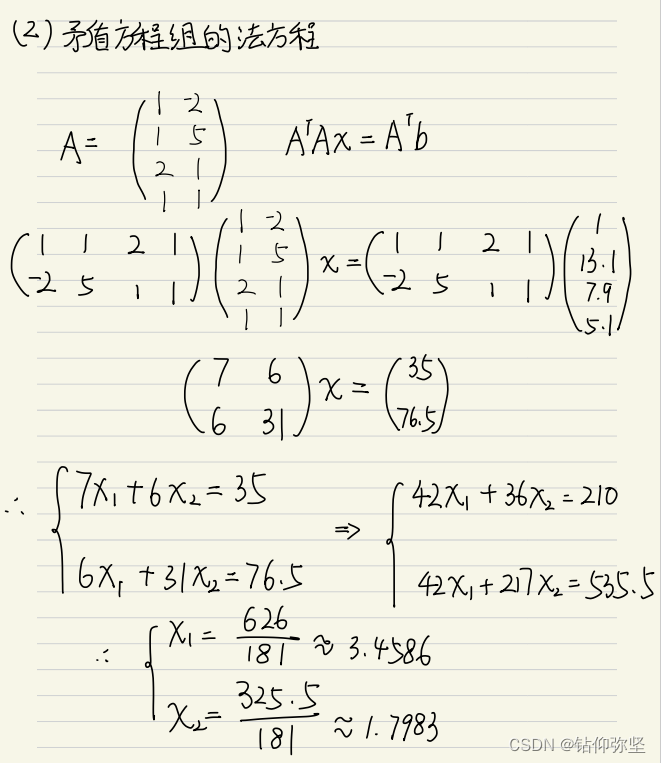 (2) 矛盾方程组的法方程
A = ( 1 -2 ; 1 5 ; 2 1 ; 1 1 ) AᵀAx = Aᵀb
( 1 1 2 1 ; -2 5 1 1 ) ( 1 -2 ; 1 5 ; 2 1 ; 1 1 ) x = ( 1 1 2 1 ; -2 5 1 1 ) ( 1 ; 13.1 ; 7.9 ; 5.1 )
( 7 6 ; 6 31 ) x = ( 35 ; 76.5 )
∴ { 7x₁ + 6x₂ = 35 ⇒ { 42x₁ + 36x₂ = 210
6x₁ + 31x₂ = 76.5 42x₁ + 217x₂ = 535.5
∴ { x₁ = 626/181 ≈ 3.4586
x₂ = 325.5/181 ≈ 1.7983
CSDN @钻仰弥坚